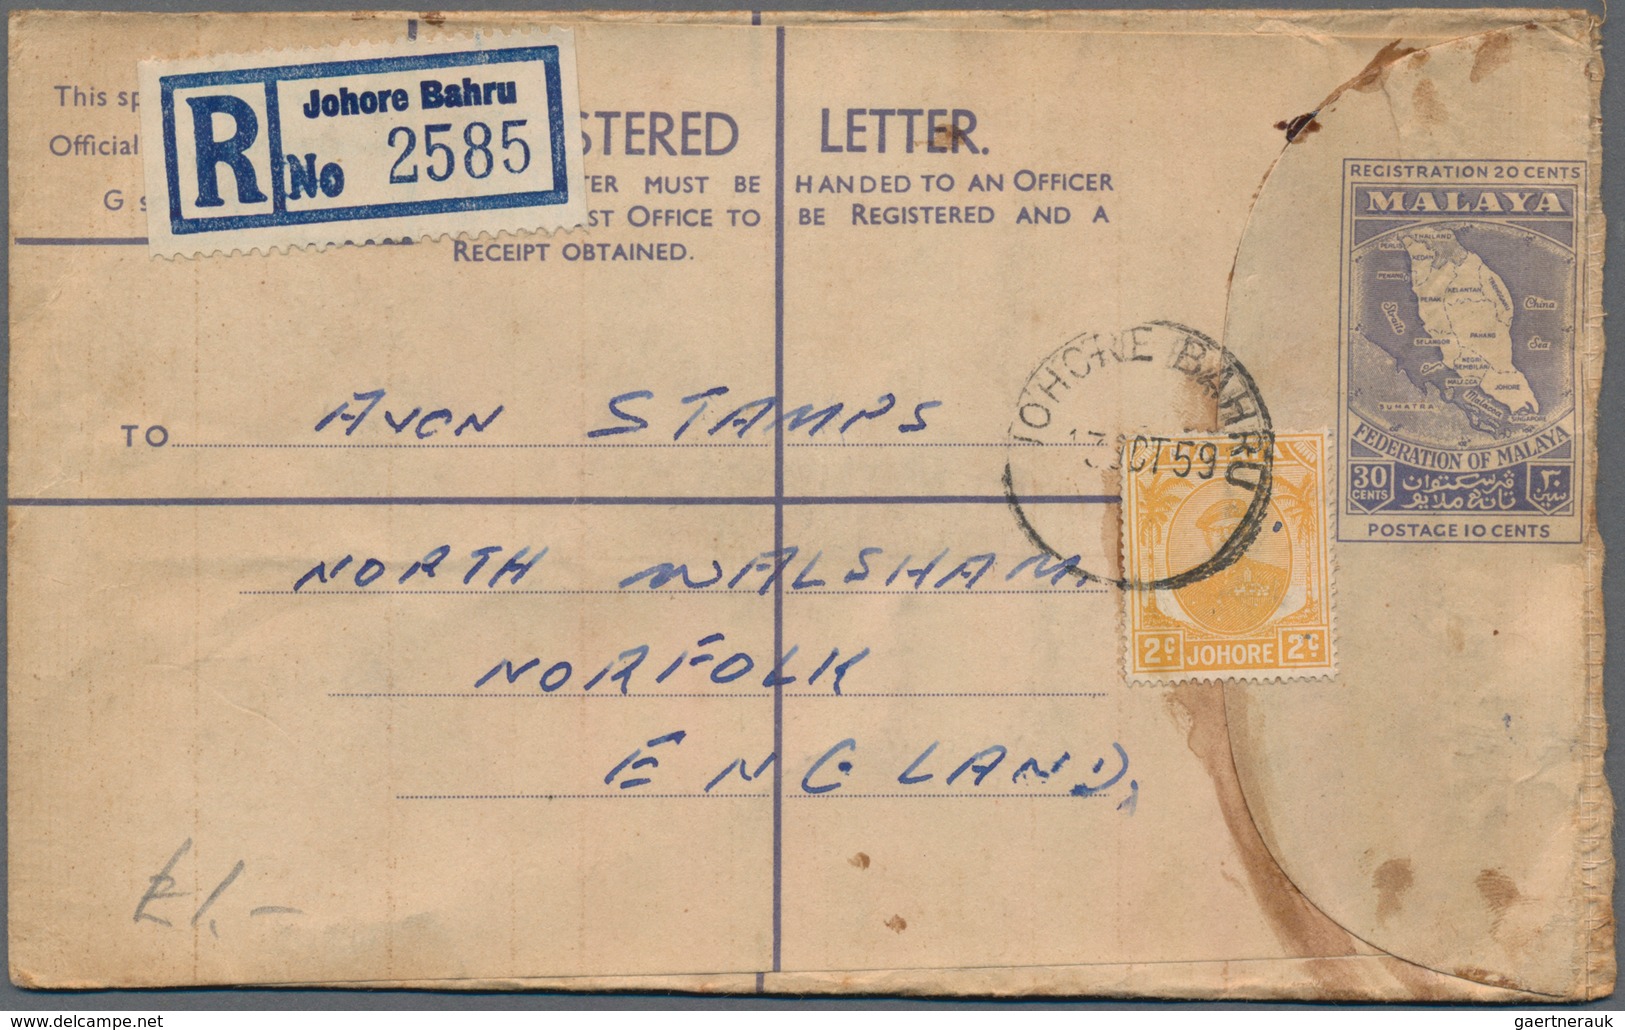 This sp
Official
G
R
Johore Bahru
No 2585
STERED LETTER.
TER MUST BE HANDED TO AN OFFICER
ST OFFICE TO BE REGISTERED AND A
RECEIPT OBTAINED.
REGISTRATION 20 CENTS
MALAYA
THAILAND
PERLIS
KEDAH
PENANG
KELANTAN
TRENGGANU
PERAK
China
Sea
Straits
PAHANG
SELANGOR
NEGRI
SEMBILAN
MALACCA
JOHORE
Malacca
SUMATRA
SINGAPORE
FEDERATION OF MALAYA
30
CENTS
ڤرسكتوان
تانه ملايو
٣٠
سين
POSTAGE 10 CENTS
JOHORE BAHRU
OCT 59
2c JOHORE 2c
TO AVON STAMPS
NORTH WALSHAM.
NORFOLK
ENGLAND,
£1.-
gaertnerauk